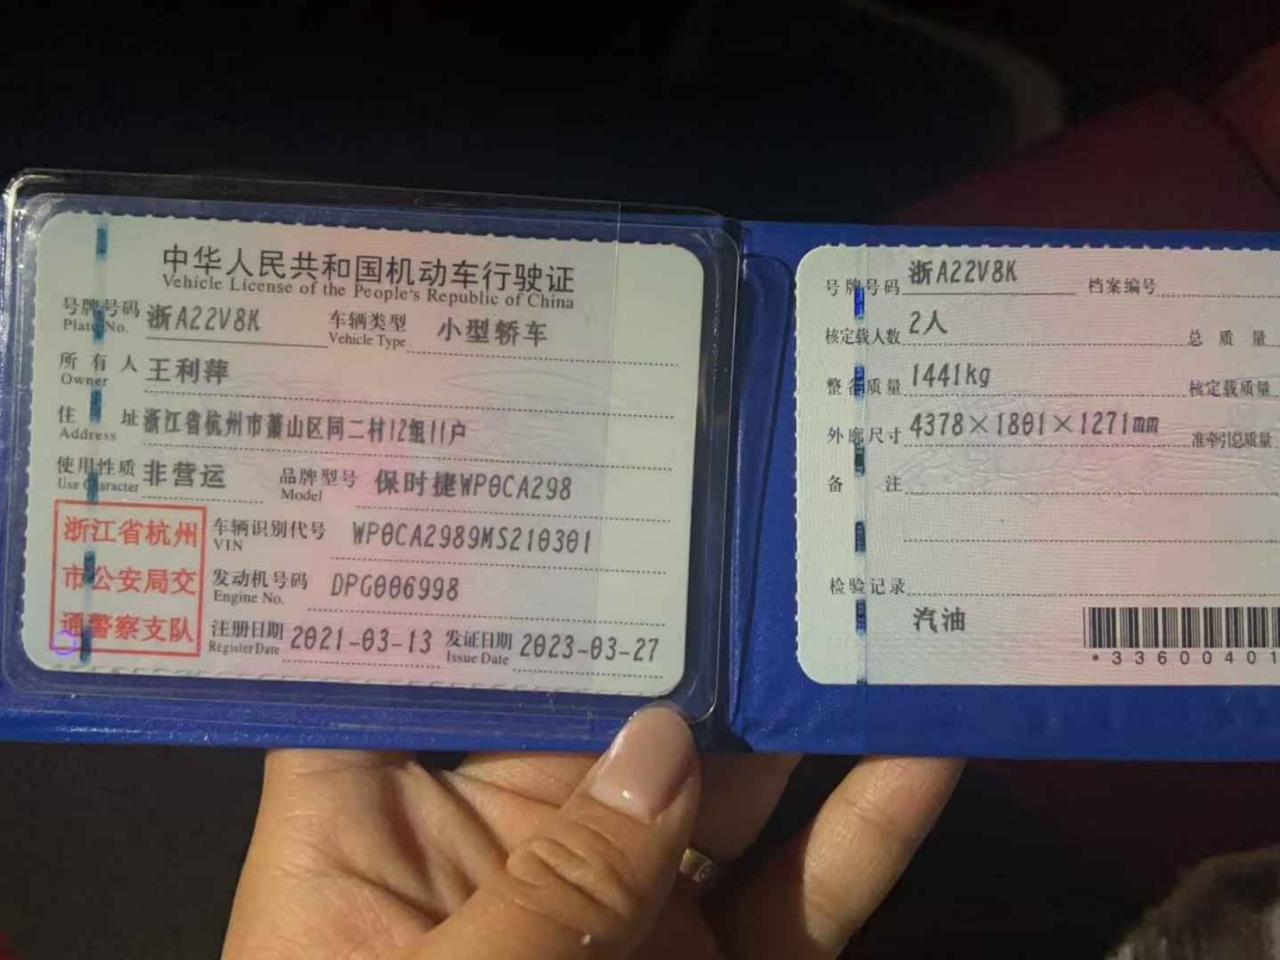 中华人民共和国机动车行驶证
Vehicle License of the People's Republic of China
号牌号码 浙A22V8K 车辆类型 小型轿车
Plate No. Vehicle Type
所有人 王利萍
Owner
住址 浙江省杭州市萧山区同二村12组11户
Address
使用性质 非营运 品牌型号 保时捷WP0CA298
Use Character Model
浙江省杭州
市公安局交
通警察支队
车辆识别代号 WP0CA2989MS210301
VIN
发动机号码 DPG006998
Engine No.
注册日期 2021-03-13 发证日期 2023-03-27
Register Date Issue Date
号牌号码 浙A22V8K 档案编号
核定载人数 2人 总质量
整备质量 1441kg 核定载质量
外廓尺寸 4378×1801×1271mm 准牵引总质量
备注
检验记录
汽油
*33600401